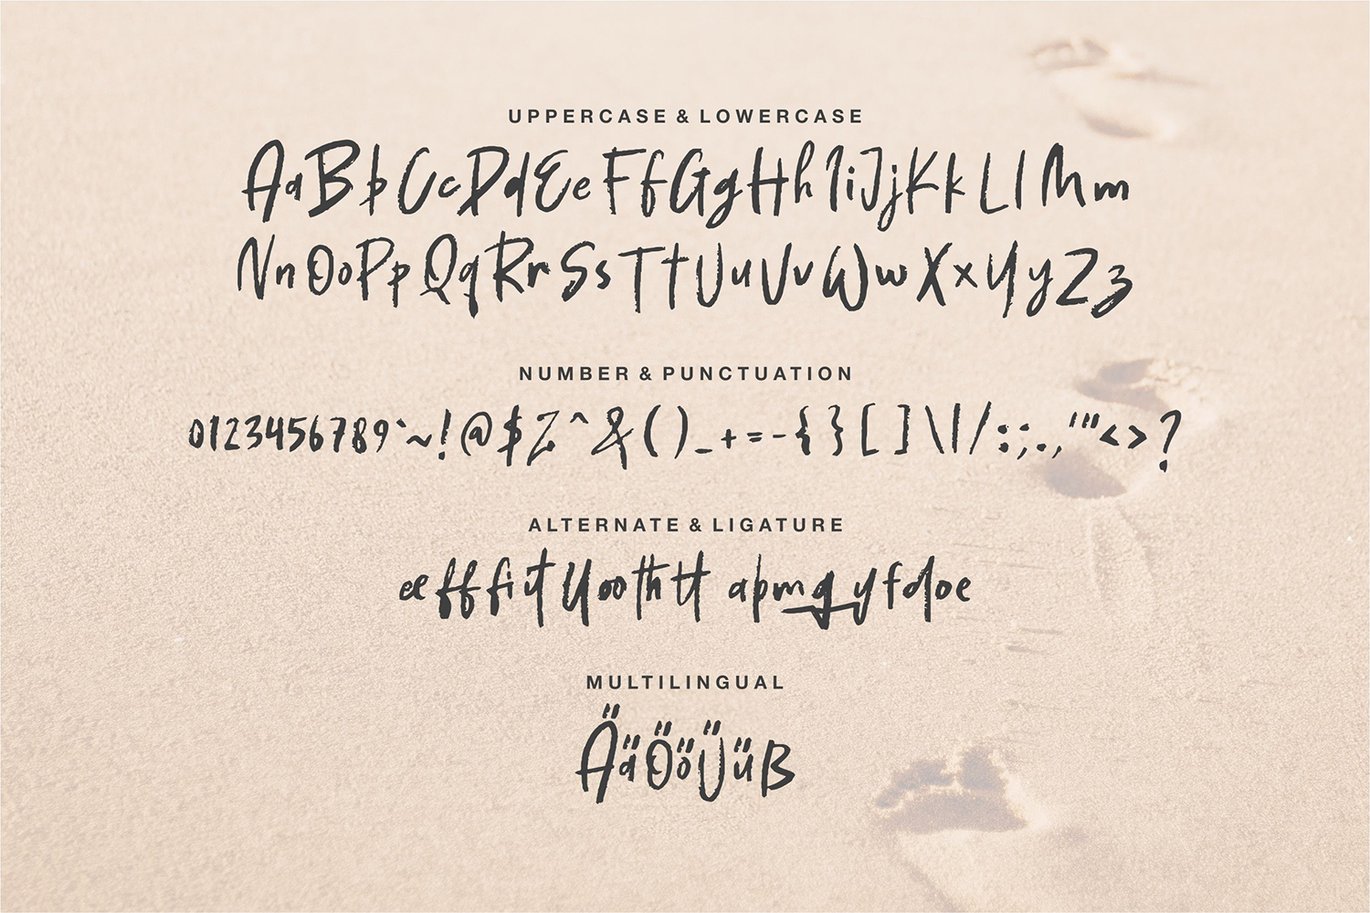 UPPERCASE & LOWERCASE
AaBbCcDdEeFfGgHhIiJjKkLlMm
NnOoPpQqRrSsTtUuVvWwXxYyZz
NUMBER & PUNCTUATION
0123456789`~!@$%^&()_+=-{}[]\|/:;.,'"<>?
ALTERNATE & LIGATURE
MULTILINGUAL
ÄäÖöÜüß